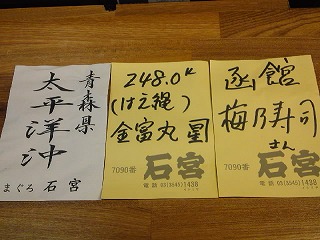 青森県
太平洋沖
まぐろ 石宮
248.0K
(はえ縄)
金富丸 星
7090番 石宮
電話 03(3545)1438
函館
梅乃寿司
さん
7090番 石宮
電話 03(3545)1438